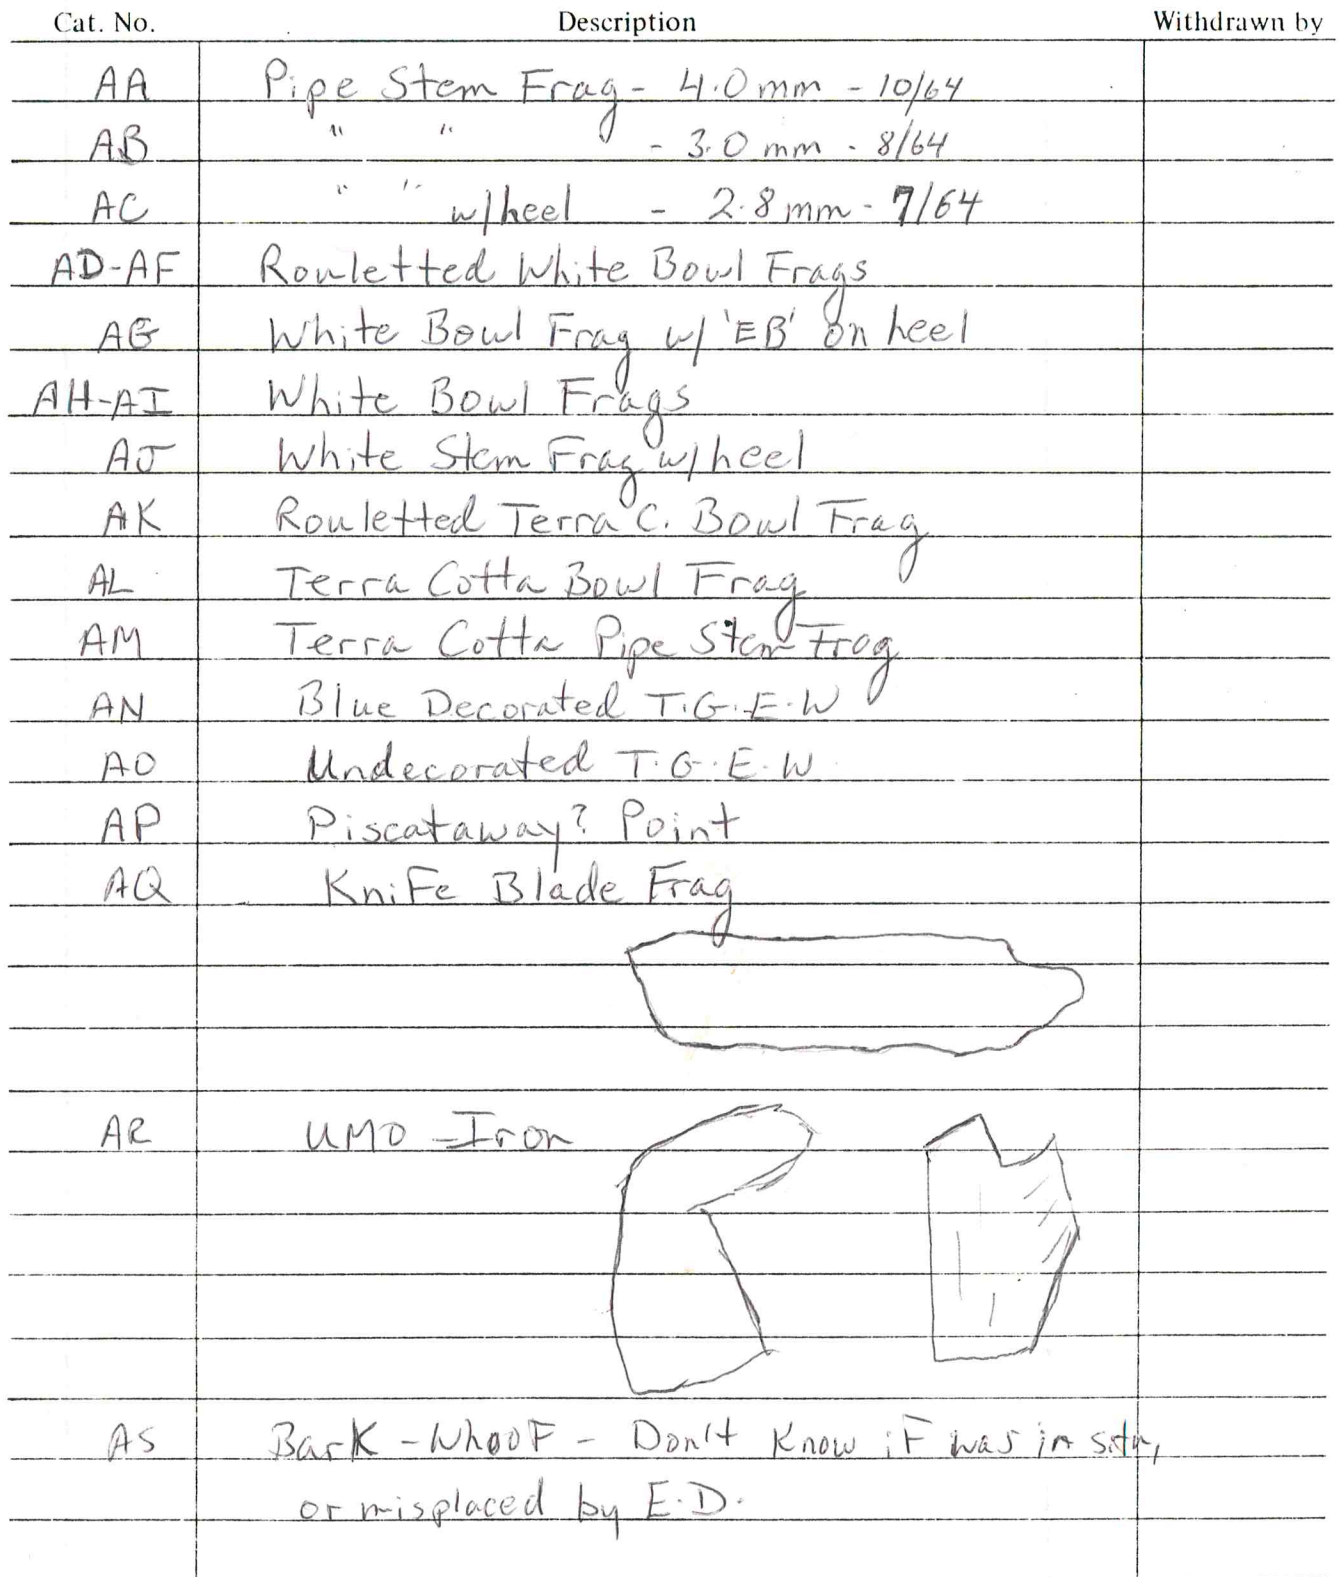 Cat. No. Description Withdrawn by
AA Pipe Stem Frag - 4.0 mm - 10/64
AB " " - 3.0 mm - 8/64
AC " " w/heel - 2.8 mm - 7/64
AD-AF Rouletted White Bowl Frags
AG White Bowl Frag w/ 'EB' on heel
AH-AI White Bowl Frags
AJ White Stem Frag w/heel
AK Rouletted Terra C. Bowl Frag
AL Terra Cotta Bowl Frag
AM Terra Cotta Pipe Stem Frag
AN Blue Decorated T.G.E.W
AO Undecorated T.G.E.W
AP Piscataway? Point
AQ Knife Blade Frag
AR UMO - Iron
AS Bark - Whoof - Don't Know if was in situ,
or misplaced by E.D.